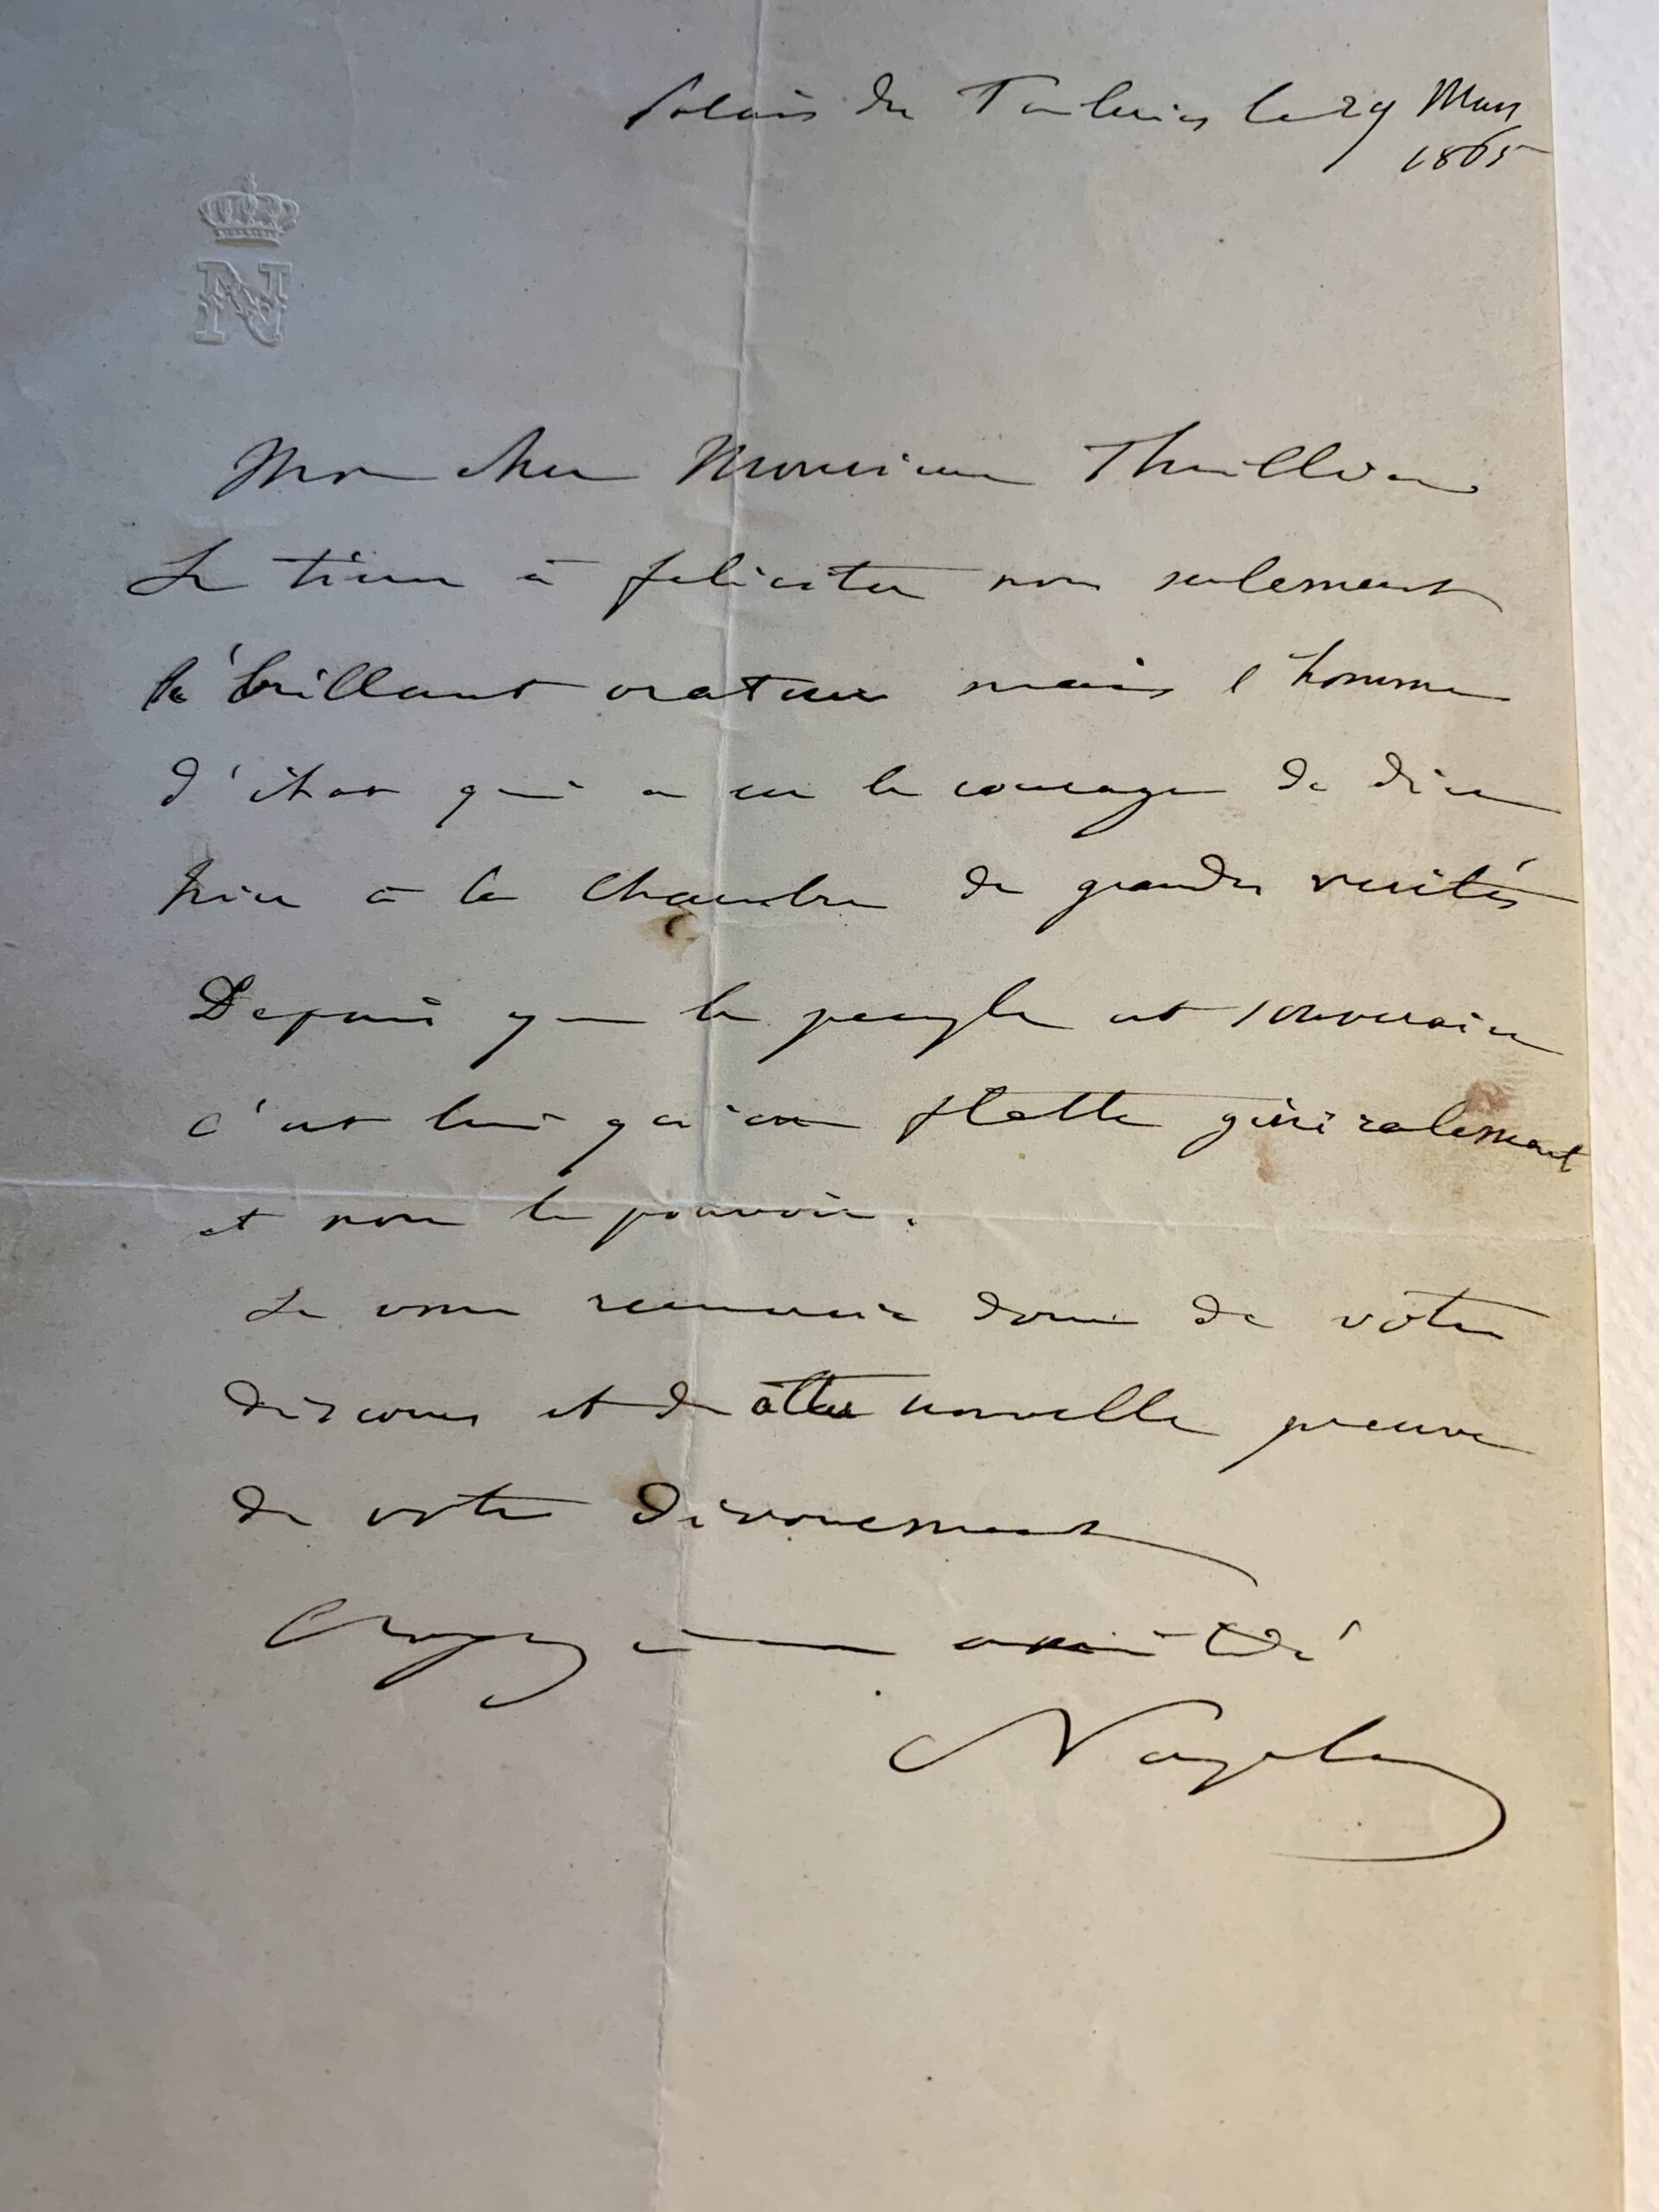 Palais des Tuileries le 29 Mars
1865
N
Mon cher Monsieur Thuillier
Je tiens à feliciter non seulement
le brillant orateur mais l'homme
d'état qui a eu le courage de dire
hier à la Chambre de grandes verités
Depuis que le peuple est souverain
c'est lui qu'on flatte généralement
et non le pouvoir.
Je vous remercie donc de votre
discours et de cette nouvelle preuve
de votre dévouement
Croyez à mon amitié
Napoléon